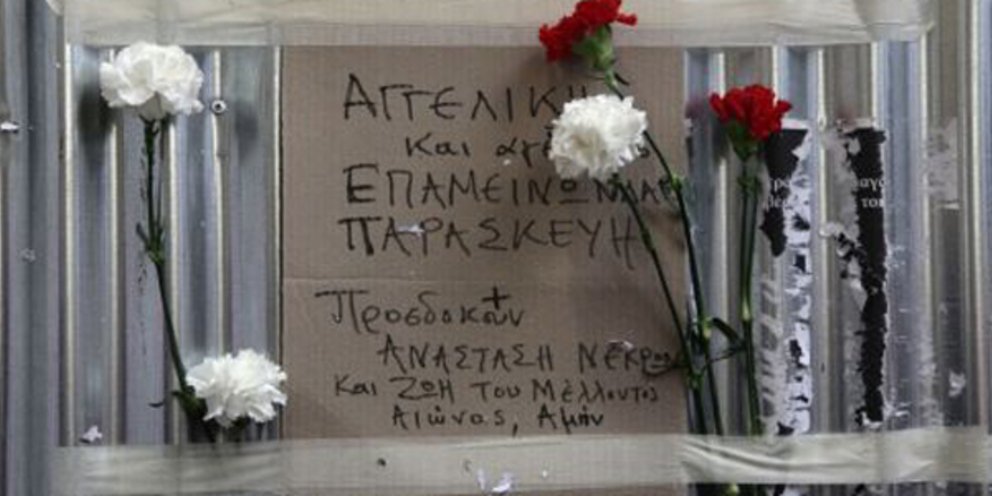 ΑΓΓΕΛΙΚΗ
Και
ΕΠΑΜΕΙΝΩΝΔΑΣ
ΠΑΡΑΣΚΕΥΗ
Προσδοκούν
ΑΝΑΣΤΑΣΗ ΝΕΚΡΩΝ
Και ΖΩΗ του Μέλλοντος
Αιώνας, Αμήν